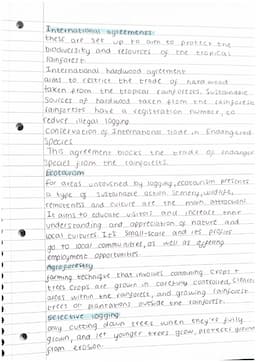 International agreements
these are set up to aim to protect the
biodiversity and resources of the tropical
rainforest
International hardwood agreement
aims to restrict the trade of hard wood
taken from the tropical rainforests. Sustainable
sources of hardwood taken from the rainforest
rainforests have a registration number, to
reduce illegal logging
Conservation of International trade in Endangered
species
This agreement blocks the trade of endanger
species from the rainforests.
Ecotourism
For areas untouched by logging, ecotourism presents
a type of sustainable action. Scenery, wildlife,
remoteness and culture are the main attraction.
It aims to educate visitors and increase their
understanding and appreciation of nature and
local cultures. It's small-scale and its profits
go to local communities, as well as offering
employment opportunities.
Agroforestry
farming technique that involves combining crops +
trees. Crops are grown in carefully controlled,
areas within the rainforests, and growing rainforest
trees on plantations outside the rainforest.
selective logging
only cutting down trees when they're fully
grown, and let younger trees grow, protects
from erosion.